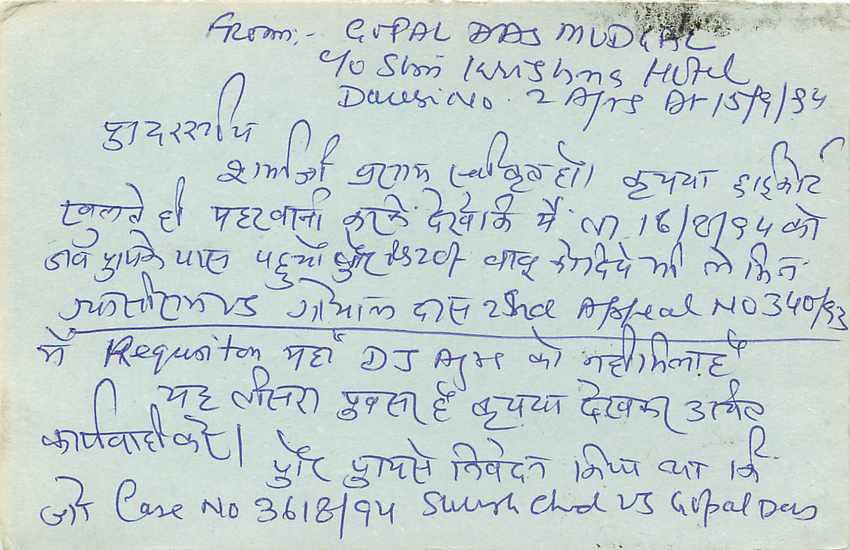 From:- GOPAL DAS MUDGAL
c/o Shri Krishna Hotel
Daresi No. 2 Agra Dt 15/9/94
आदरणीय
शर्माजी प्रणाम स्वीकृत हो। कृपया हाईकोर्ट
खुलते ही महरवानी करके देखें कि मैं ता 16/8/94 को
जब आपके पास पहुचाँ और वाबू को दिये भी लेकिन
VS गोपाल दास 2nd Appeal NO 340/93
में Requsiton यहाँ DJ Agra को नहीं मिला है
यह तीसरा अवसर है कृपया देखकर उचित
कार्यवाही करें।
और आपसे निवेदन किया था कि
जो Case No 3618/94 Suresh Chd VS Gopal Das